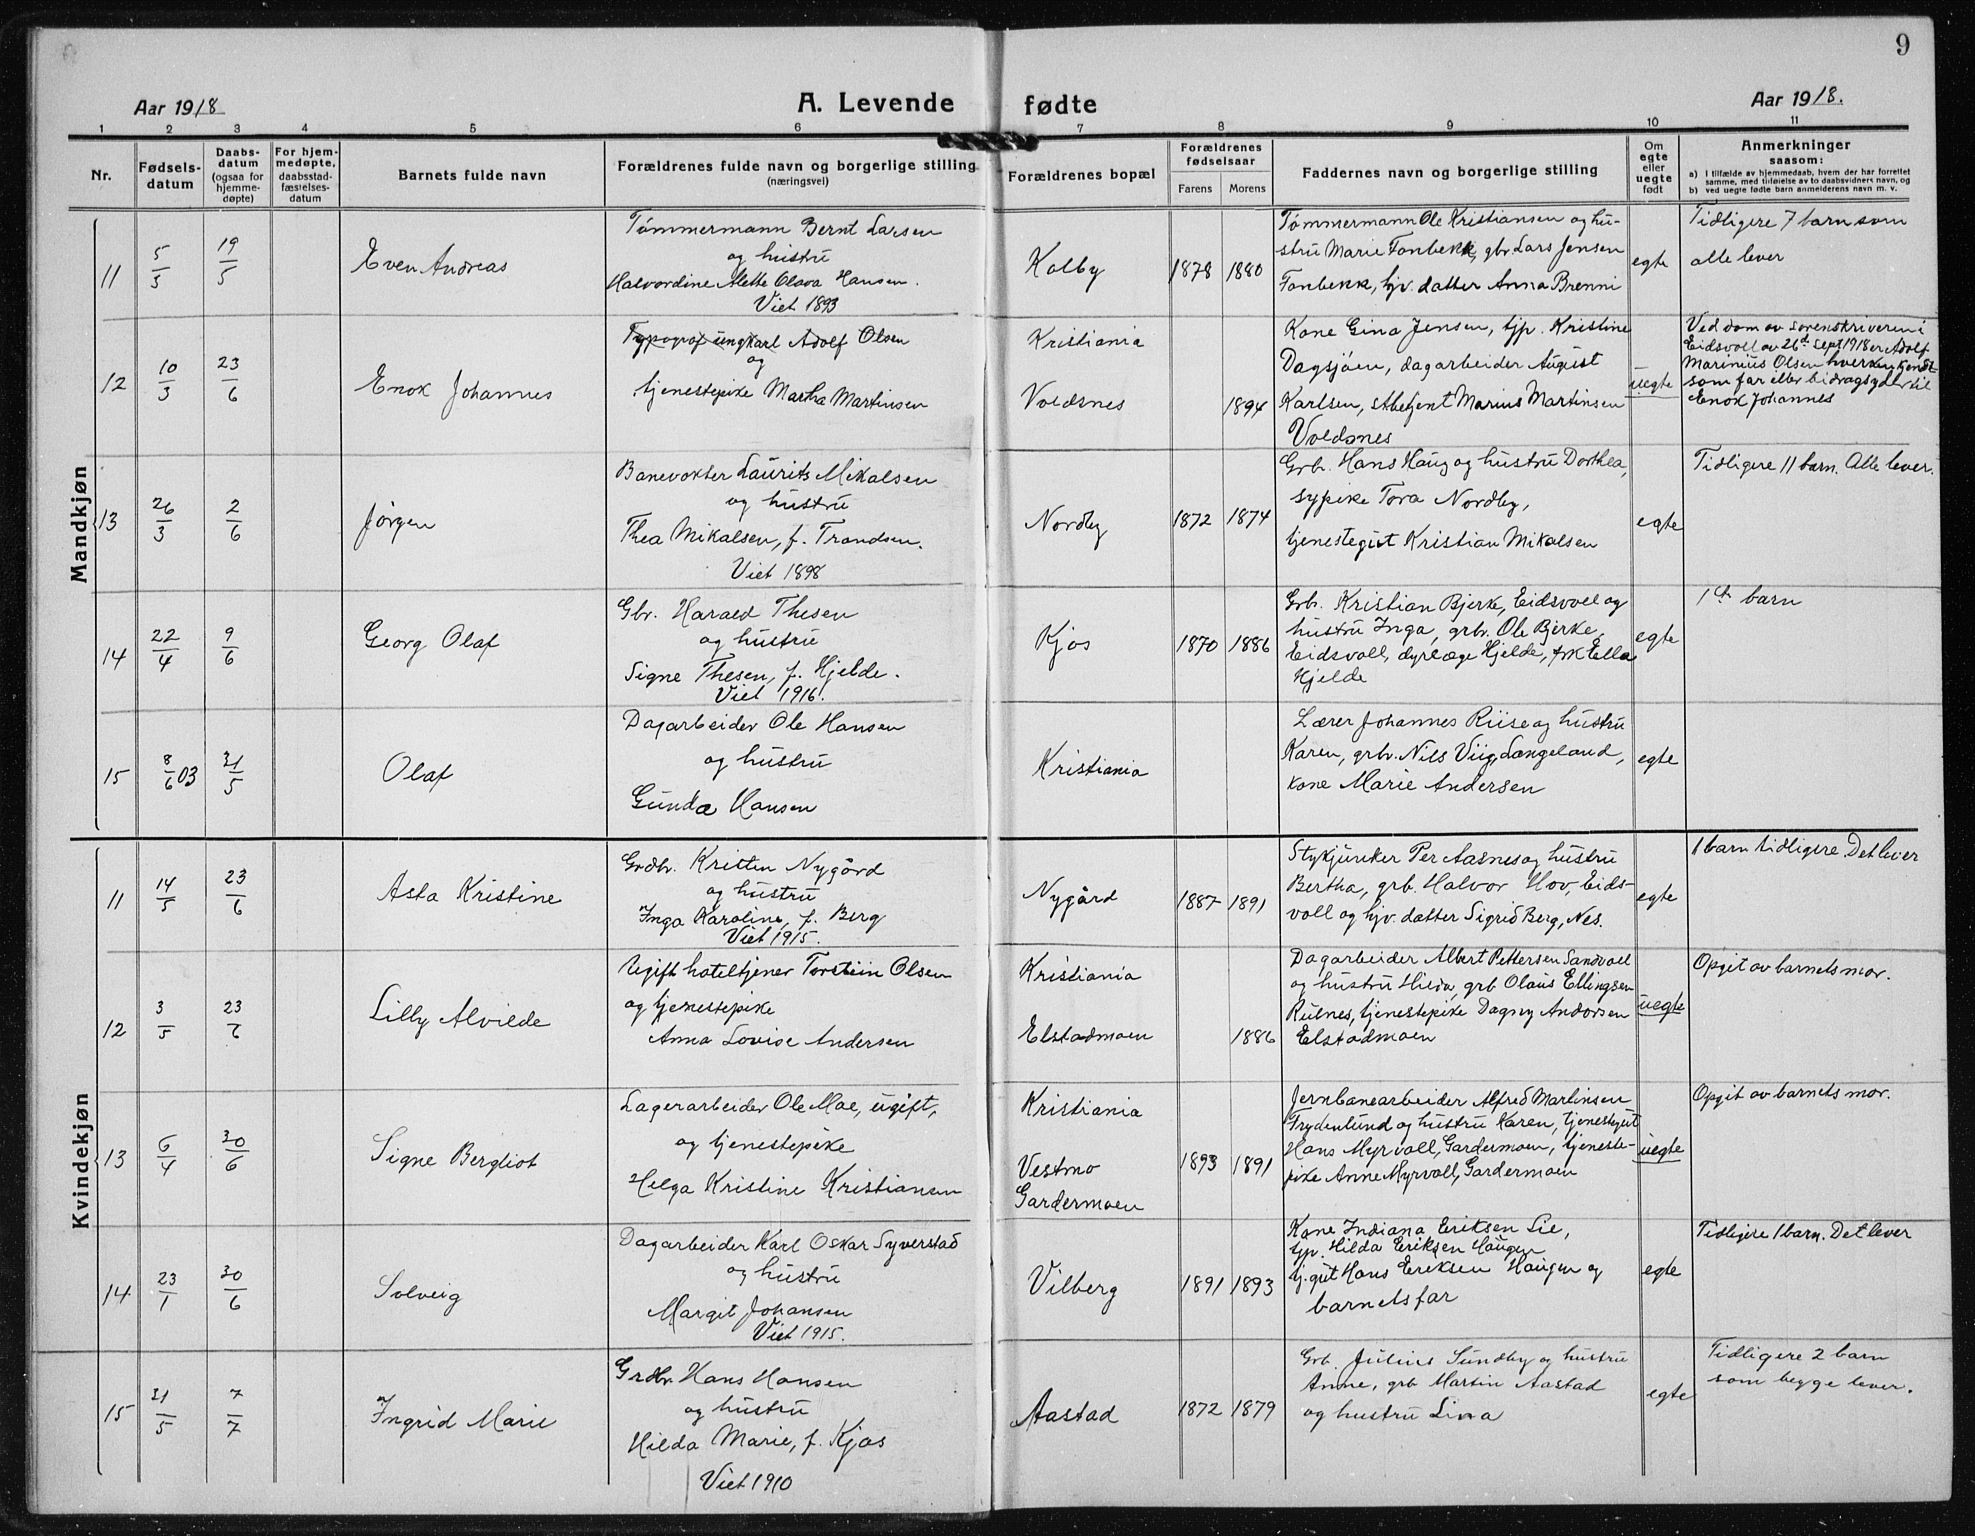 9
Aar 1918
A. Levende fødte
Aar 1918.
1 2 3 4 5 6 7 8 9 10 11
Nr.
Fødsels-
datum
Daabs-
datum
(ogsaa for
hjemme-
døpte)
For hjem-
medøpte,
daabsstad-
fæstelses-
datum
Barnets fulde navn
Forældrenes fulde navn og borgerlige stilling
(næringsvei)
Forældrenes bopæl
Forældrenes
fødselsaar
Farens Morens
Faddernes navn og borgerlige stilling
Om
egte
eller
uegte
født
Anmerkninger
saasom:
a) I tilfælde av hjemmedaab, hvem der har forrettet
samme, med tilføielse av to daabsvidners navn, og
b) ved uegte fødte barn anmelderens navn m. v.
Mandkjøn
11
5/3
19/5
Even Andreas
Tømmermann Bernt Larsen
og hustru
Halvordine Alette Olava Hansen.
Viet 1893
Kolby
1878 1880
Tømmermann Ole Kristiansen og hu-
stru Marie Fonbekk, gbr. Lars Jensen
Fonbekk, hjv. datter Anna Brenni
egte
Tidligere 7 barn som
alle lever
12
10/3
23/6
Enok Johannes
Typograf ungkarl Adolf Olsen
og
tjenestepike Martha Martinsen
Kristiania
Voldsnes
1894
Kone Gina Jensen, tjp. Kristine
Dagsjøen, dagarbeider August
Karlsen, stbetjent Marius Martinsen
Voldsnes
uegte
Ved dom av sorenskriveren i
Eidsvoll av 26de Sept 1918 er Adolf
Marinius Olsen hverken kjendt
som far eller bidragsyder til
Enok Johannes
13
26/3
2/6
Jørgen
Banevokter Laurits Mikalsen
og hustru
Thea Mikalsen, f. Trondsen.
Viet 1898
Nordby
1872 1874
Grb. Hans Haug og hustru Dorthea,
sypike Tora Nordby,
tjenestegut Kristian Mikalsen
egte
Tidligere 11 barn. Alle lever.
14
22/4
9/6
Georg Olaf
Gbr. Harald Thesen
og hustru
Signe Thesen, f. Hjelde.
Viet 1916.
Kjos
1870 1886
Grb. Kristian Bjerke, Eidsvoll og
hustru Inga, grb. Ole Bjerke,
Eidsvoll, dyrlæge Hjelde, frk Ella
Hjelde
egte
1ste barn
15
8/6 03
31/5
Olaf
Dagarbeider Ole Hansen
og hustru
Gunda Hansen
Kristiania
Lærer Johannes Riise og hustru
Karen, grb. Nils Viig, Langeland,
kone Marie Andersen
egte
Kvindekjøn
11
14/5
23/6
Asta Kristine
Grdbr. Kristen Nygård
og hustru
Inga Karoline, f. Berg
Viet 1915.
Nygård
1887 1891
Stykjunker Per Aasnes og hustru
Bertha, grb. Halvor Hov, Eids-
voll og hjv. datter Sigrid Berg, Nes.
egte
1 barn tidligere. Det lever
12
3/5
23/6
Lilly Alvilde
Ugift hoteltjener Torstein Olsen
og tjenestepike
Anna Lovise Andersen
Kristiania
Elstadmoen
1886
Dagarbeider Albert Pettersen Sandvoll
og hustru Hilda, grb Olaus Ellingsen
Rulnes, tjenestepike Dagny Andorsen
Elstadmoen
uegte
Opgit av barnets mor.
13
6/4
30/6
Signe Bergliot
Lagerarbeider Ole Moe, ugift,
og tjenestepike
Helga Kristine Kristiansen
Kristiania
Vestmo
Gardermoen
1893 1891
Jernbanearbeider Alfred Martinsen
Frydenlund og hustru Karen, tjenestegut
Hans Myrvoll, Gardermoen, tjeneste-
pike Anne Myrvoll, Gardermoen
uegte
Opgit av barnets mor.
14
23/1
30/6
Solveig
Dagarbeider Karl Oskar Syverstad
og hustru
Margit Johansen
Viet 1915.
Vilberg
1891 1893
Kone Indiana Eriksen Lie,
tjp. Hilda Eriksen Haugen
tj.gut Hans Eriksen Haugen og
barnets far
egte
Tidligere 1 barn. Det lever
15
31/5
7/7
Ingrid Marie
Grdbr. Hans Hansen
og hustru
Hilda Marie, f. Kjos
Viet 1910
Aastad
1872 1879
Grb. Julius Sundby og hustru
Anne, grb Martin Aastad
og hustru Lina
egte
Tidligere 2 barn
som begge lever.